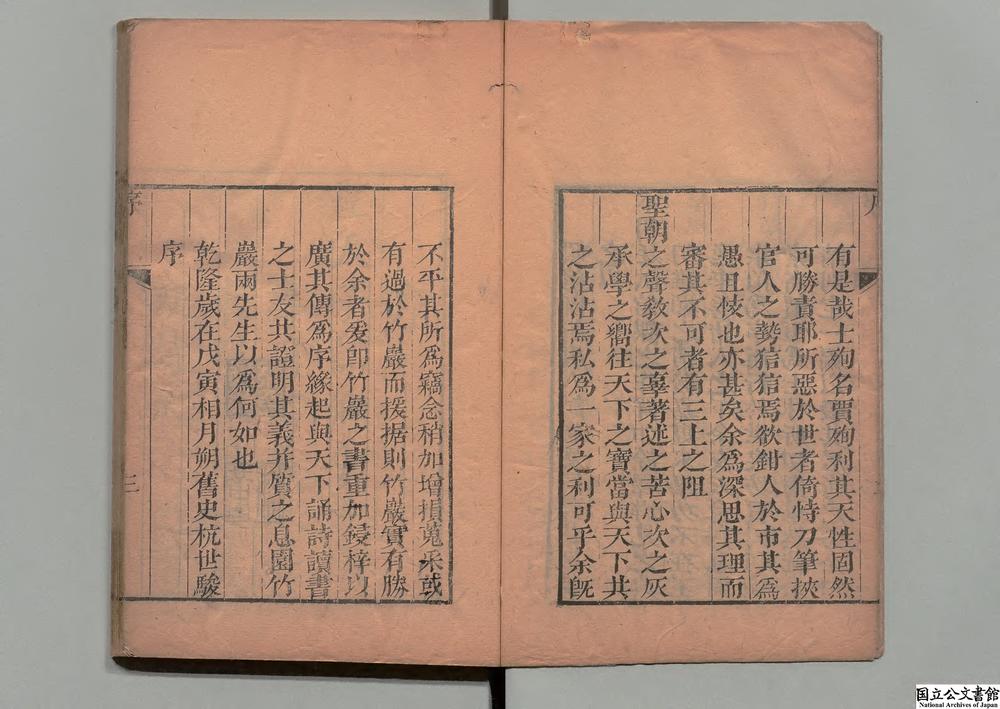 有是哉士殉名賈殉利其天性固然
可勝責耶所惡於世者倚恃刀筆挾
官人之勢狺狺焉欲鉗人於市其為
愚且忮也亦甚矣余為深思其理而
審其不可者有三上之阻
聖朝之聲敎次之辜著述之苦心次之灰
承學之嚮往天下之寶當與天下共
之沾沾焉私為一家之利可乎余旣
不平其所為竊念稍加增損蒐采或
有過於竹巖而援据則竹巖實有勝
於余者爰卽竹巖之書重加鋟梓以
廣其傳為序緣起與天下誦詩讀書
之士友共證明其義并質之息園竹
巖兩先生以為何如也
乾隆歲在戊寅相月朔舊史杭世駿
序
序
三
国立公文書館
National Archives of Japan